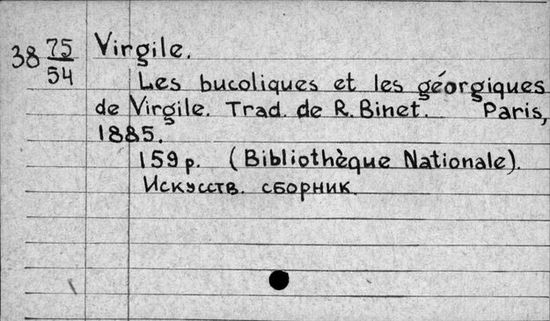 38 75/54 Virgile.
Les bucoliques et les géorgiques
de Virgile. Trad. de R. Binet. Paris,
1885.
159 p. (Bibliothèque Nationale).
Искусств. сборник.